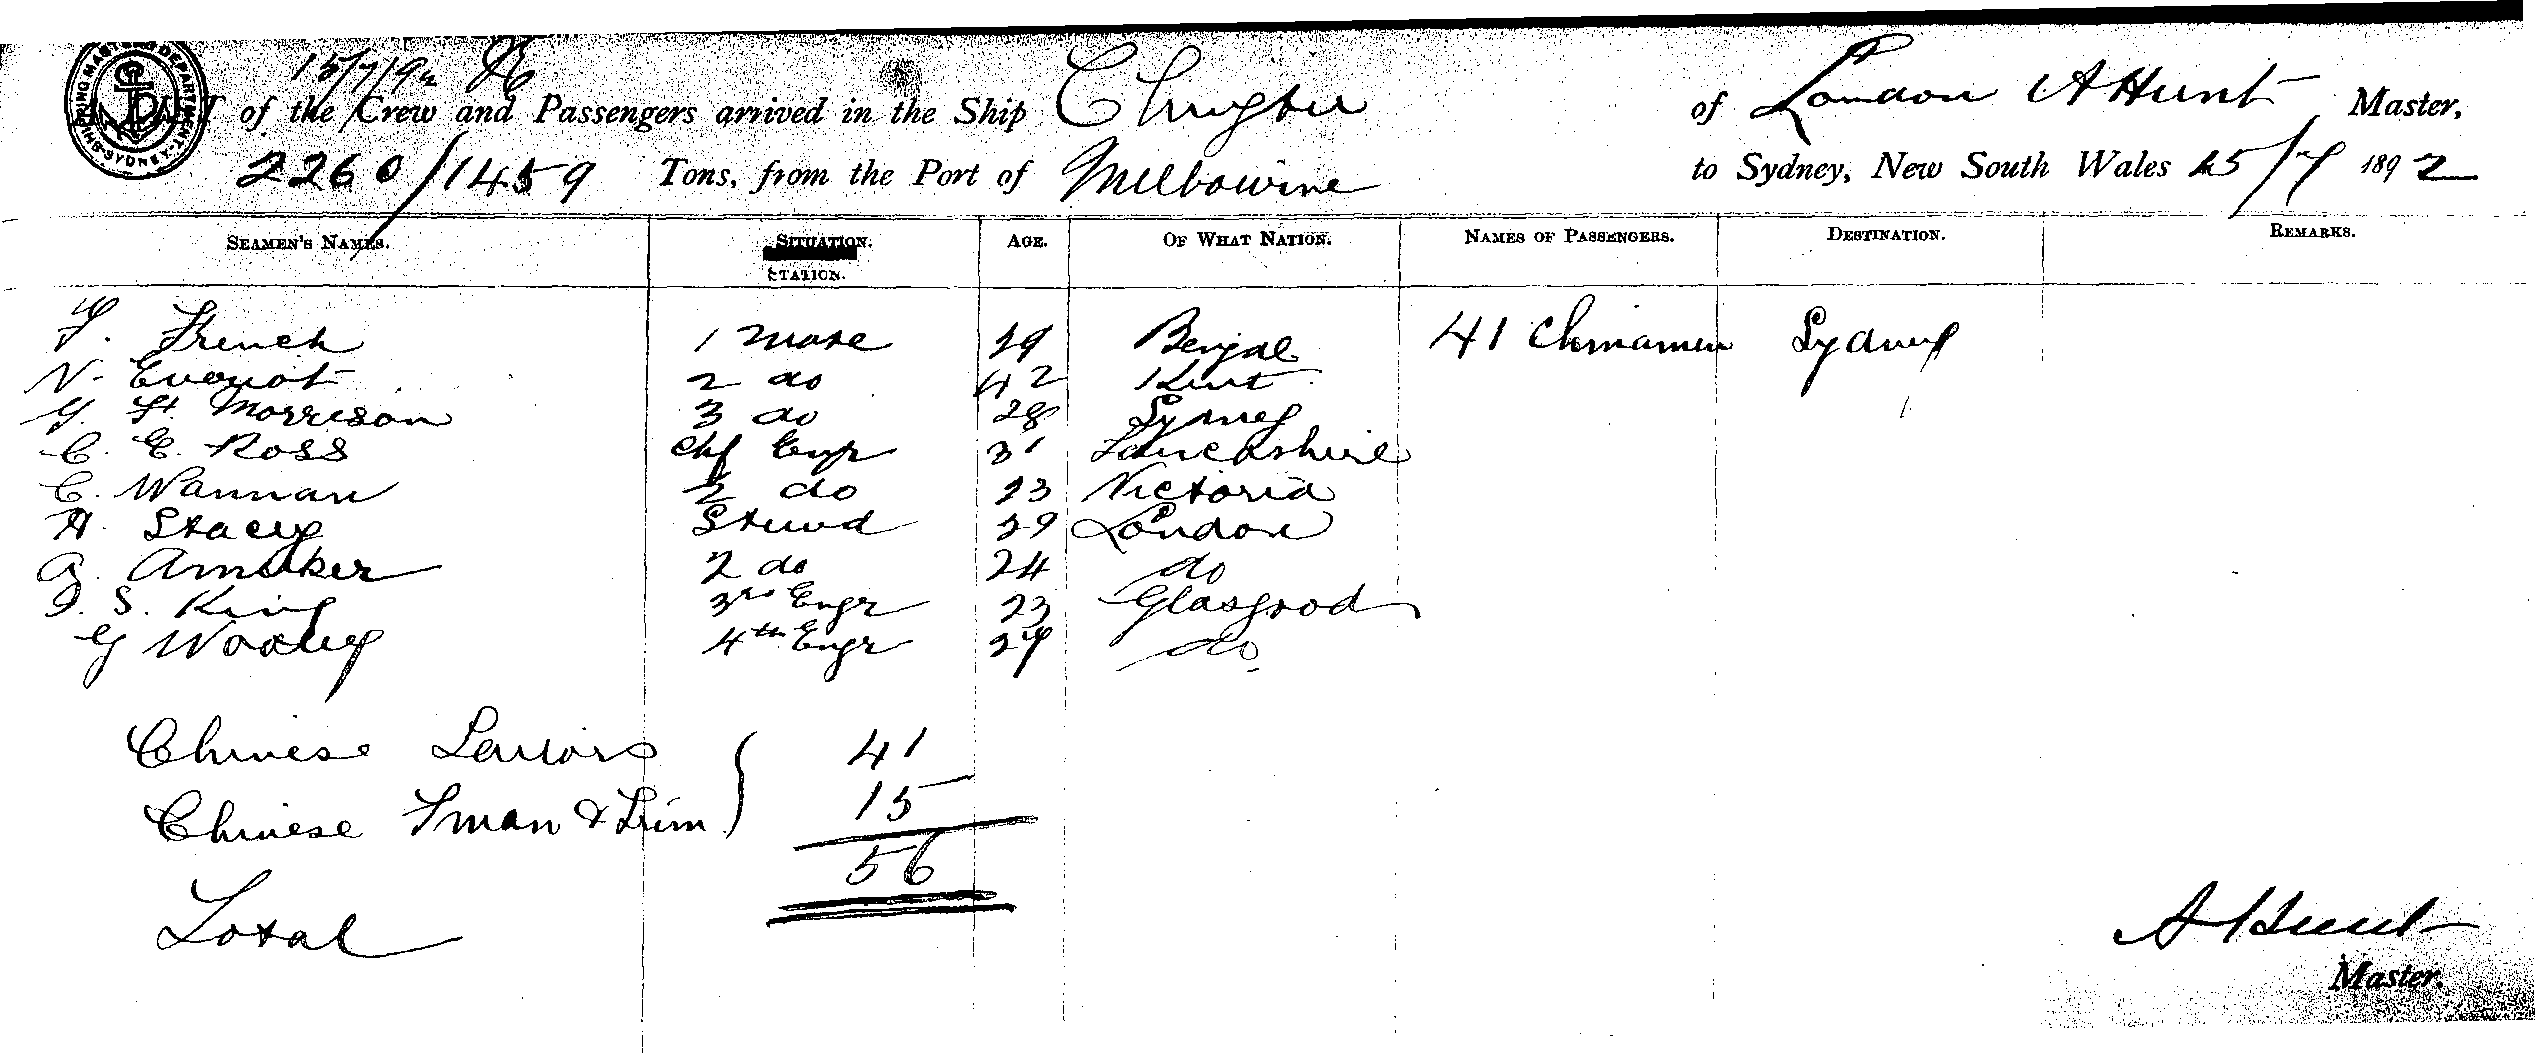 SHIPPING MASTER'S DEPARTMENT SYDNEY
15/7/92
A LIST of the Crew and Passengers arrived in the Ship Chingtu of London A Hunt Master,
2260/1459 Tons, from the Port of Melbourne to Sydney, New South Wales 15/7 1892
SEAMEN'S NAMES. SITUATION. STATION. AGE. OF WHAT NATION. NAMES OF PASSENGERS. DESTINATION. REMARKS.
French 1 Mate 29 Bengal 41 Chinamen Sydney
N. 2 do 42 Kent
G. St. Morrison 3 do 28 Sydney
C. E. Ross Chf Engr 31 Lancashire
C. Wannan 2 do 23 Victoria
H. Stacey Stewd 29 London
A. Amaker 2 do 24 do
S. King 3rd Engr 23 Glasgow
G Woolley 4th Engr 24 do
Chinese Sailors 41
Chinese Fman & Trim 15
56
Total
A Hunt
Master.